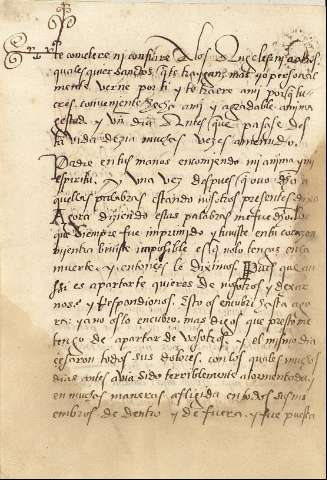 te cometere ni confiare A los Angeles ni a otros
qualesquier sanctos q̄ te trayan, mas yo personal
mente verne por ti y te traere ami porq̄ tu
eres conveniente ami y agradable a mi ma
gestad. y Un dia Antes que pasase des
ta vida dezia muchas vezes diziendo.
Padre en tus manos encomiendo mi anima y mi
espiritu. y una vez despues que ovo dicho a
quellas palabras estando nosotros presentes dixo
Agora diziendo estas palabras me fue dicho. lo
que siempre fue imprimido y tuviste en tu coraçon
mientra biviste imposible es q̄ no lo tengas en la
muerte. y entonçes le diximos. Pues que an
ssi es apartarte quieres de nosotros y dexar
nos. y Respondionos. Esto os encubri hasta ago
ra: ya no os lo encubro. mas digos que presto me
tengo de apartar de vosotros. y el mismo dia
cesaron todos sus dolores. con los quales muchos
dias antes avia sido terriblemente atormentada y
en muchas maneras afligida en todos sus mi
embros de dentro y de fuera. y fue puesta